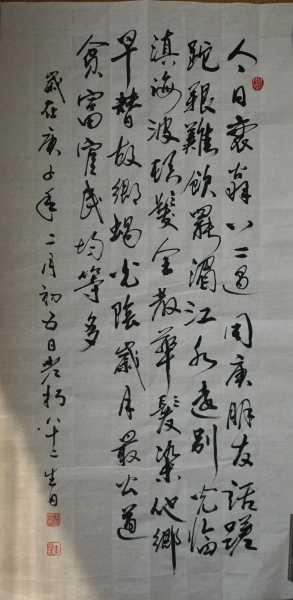 今日衰齡八二過同庚朋友話蹉
跎艱難飲罷濁江水遠別光臨
滇海波鬢全教華髮染他鄉
早替故鄉光陰歲月最公道
貧富官民均等多
歲在庚子年二月初日老朽八十二生日